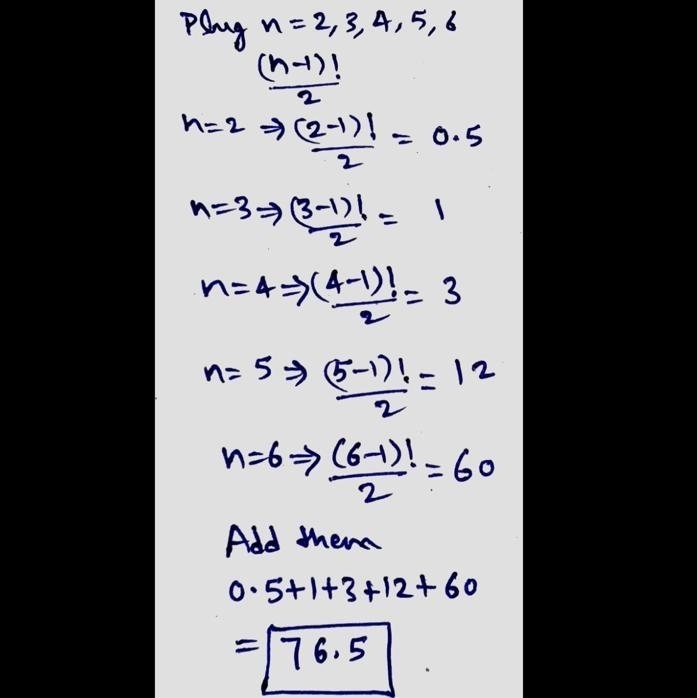 Plug n=2,3,4,5,6
(n-1)!
2
n=2 ⇒ (2-1)!/2 = 0.5
n=3 ⇒ (3-1)!/2 = 1
n=4 ⇒ (4-1)!/2 = 3
n=5 ⇒ (5-1)!/2 = 12
n=6 ⇒ (6-1)!/2 = 60
Add them
0.5+1+3+12+60
= 76.5